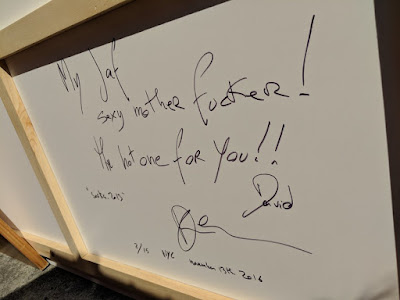 My Jaf
sexy mother fucker!
the hot one for you!!
David
2/15 NYC November 13th 2016